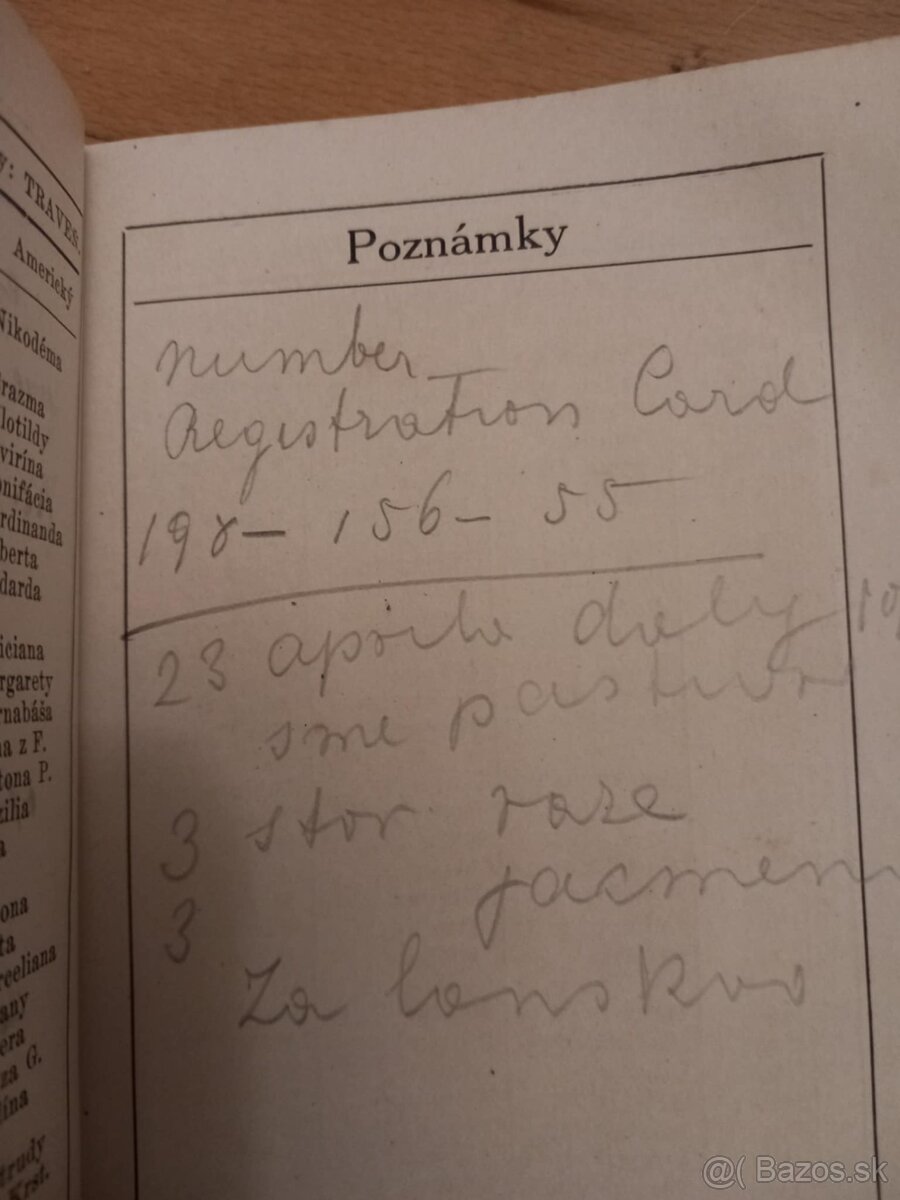 Y: TRAVEŇ.
Americký
Nikodéma
razma
lotildy
virína
onifácia
rdinanda
berta
darda
iciana
rgarety
rnabáša
na z F.
tona P.
zília
a
ona
ta
reeliana
any
era
za G.
lína
trudy
Krst.
Poznámky
number
Registration Card
198 - 156 - 55
23 aprila daly
sme pastvu
3 stor. roze
3 jacmen
Za lonskvo
@( Bazos.sk